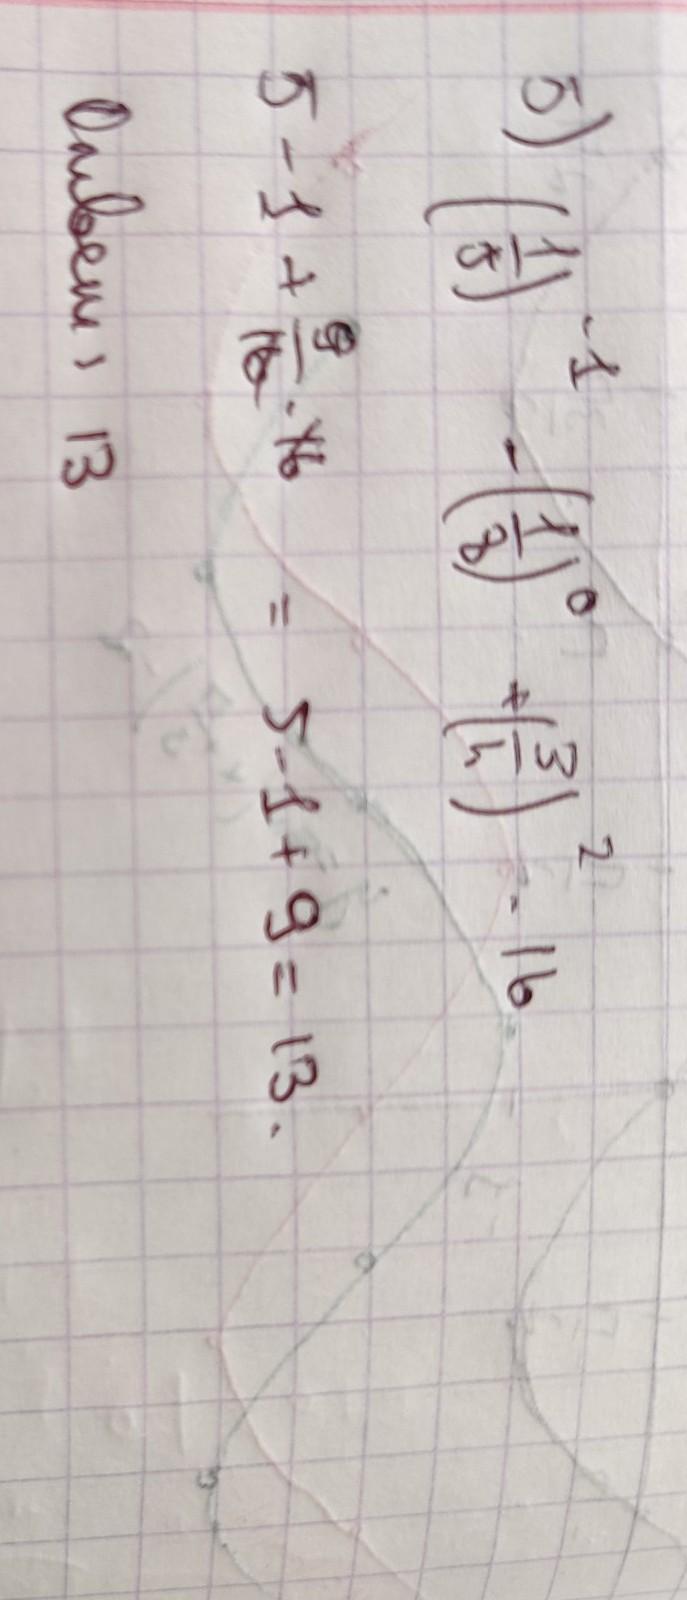 5) (1/5)^-1 - (1/8)^0 + (3/4)^2 · 16
5 - 1 + 9/16 · 16 = 5 - 1 + 9 = 13.
Ответ, 13